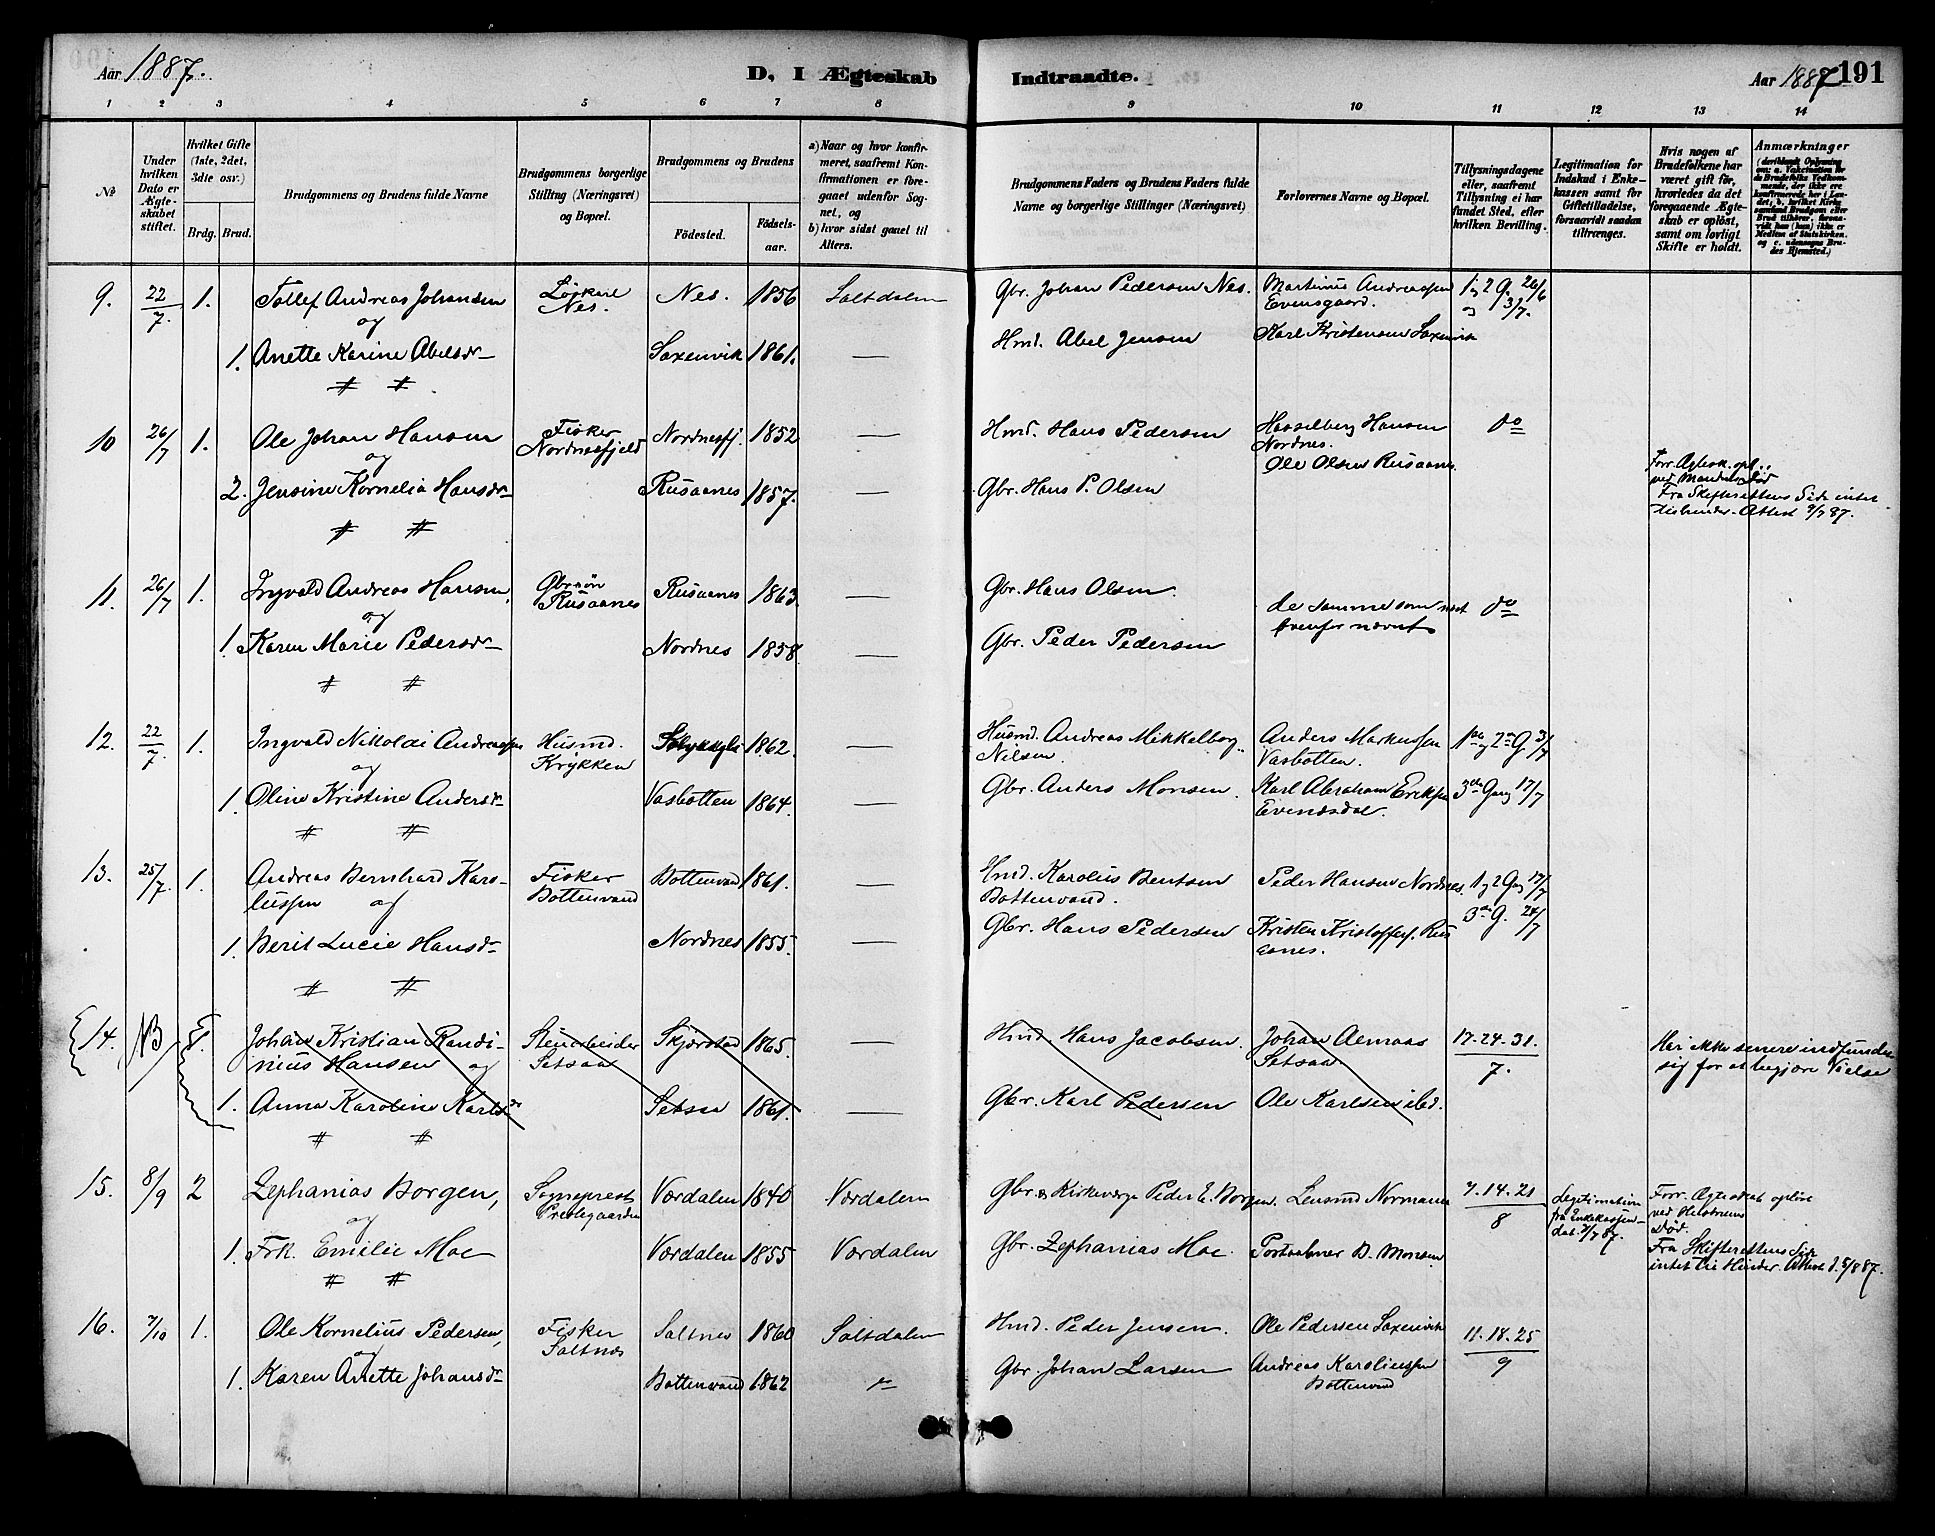 Aar 1887.
D, I Ægteskab Indtraadte.
Aar 1887. 191
1 2 3 4 5 6 7 8 9 10 11 12 13 14
No
Under hvilken Dato er Ægteskabet stiftet.
Hvilket Gifte (1ste, 2det, 3die osv.)
Brdg. Brud.
Brudgommens og Brudens fulde Navne
Brudgommens borgerlige Stilling (Næringsvei) og Bopæl.
Brudgommens og Brudens
Fødested.
Fødselsaar.
a) Naar og hvor konfirmeret, saafremt Konfirmationen er foregaaet udenfor Sognet, og
b) hvor sidst gaaet til Alters.
Brudgommens Faders og Brudens Faders fulde Navne og borgerlige Stillinger (Næringsvei)
Forlovernes Navne og Bopæl.
Tillysningsdagene eller, saafremt Tillysning ei har fundet Sted, efter hvilken Bevilling.
Legitimation for Indskud i Enkekassen samt for Giftetilladelse, forsaavidt saadan tiltrænges.
Hvis nogen af Brudefolkene har været gift før, hvorledes da det foregaaende Ægteskab er opløst, samt om lovligt Skifte er holdt.
Anmærkninger
9. 22/7. 1. Tollef Andreas Johansen Nes. 1856 Saltdalen Gbr. Johan Pedersen Nes. Martinus Andreassen Evensgaard. 1 og 2 G. 26/6 og 3/7.
og Nes.
1. Anette Karine Abelsdr Saxenvik 1861. — Hmd. Abel Jensen Karl Kristensen Saxenvik
10 26/7 1. Ole Johan Hansen Fisker Nordnesfjeld Nordnesfj. 1852 — Hmd. Hans Pedersen Hasselberg Hansen Nordnes. do
og
2. Jensine Kornelia Hansdr Rusaanes 1857. — Gbr. Hans P. Olsen Ole Olsen Rusaanes. Forr. Ægtesk. opl. ved Mandens Død
Fra Skifterettens Side intet
Attest 9/7 87.
11. 26/7 1. Ingvald Andreas Hansen, Gbrsøn Rusaanes Rusaanes 1863. — Gbr. Hans Olsen. de samme som næst ovenfor nævnt do
og
1. Karen Marie Pedersdr Nordnes 1858. — Gbr. Peder Pedersen
12. 22/7 1. Ingvald Nikolai Andreassen Husmd. Krykken 1862. — Husmd. Andreas Mikkelborg Nilsen. Anders Markussen Vasbotten. 1ste og 2n G 3/7
og
1. Oline Kristine Andersdr Vasbotten 1864. — Gbr. Anders Monsen. Karl Abraham Eriksen Evensdal. 3die Gang 17/7
13. 25/7. 1. Andreas Bernhard Karolussen og Fisker Bottenvand Bottenvand 1861. — Hmd. Karolus Bentsen Bottenvand. Peder Hansen Nordnes. 1 og 2 Gang 17/7
3die G. 24/7
1. Berit Lucie Hansdr Nordnes 1855. — Gbr. Hans Pedersen Kristen Kristoffers. Rusaanes.
14. NB 1. Johan Kristian Randinius Hansen og Stenarbeider Setsaa Skjerstad 1865. — Hmd. Hans Jacobsen. Johan Setsaa 17. 24. 31. / 7. Har ikke senere indfundet sig for at begjære Vielse
1. Anna Karoline Karlsdr Setsaa 1861. — Gbr. Karl Pedersen Ole Karlsen ibd.
15. 8/9 2 Zephanias Borgen, Sogneprest Prestegaarden Værdalen 1840 Værdalen Gbr. & Kirkeværge Peder E. Borgen. Lensmd Normann 7. 14. 21 / 8 Legitimation fra Enkekassen dat. 7/7 87. Forr. Ægteskab opløst ved Hustruens Død.
og
1. Frk. Emilie Moe Værdalen 1855 Værdalen Gbr. Zephanias Moe. Postaabner B. Monsen Fra Skifterettens Side intet til Hinder. Attest d. 5/8 87.
16. 7/10 1. Ole Kornelius Pedersen, Fisker Saltnes Saltnes 1860 Saltdalen Hmd. Peder Jensen. Ole Pedersen Saxenvik 11. 18. 25 / 9
og
1. Karen Anette Johansdr Bottenvand 1862 Gbr. Johan Larsen Andreas Karoliussen Bottenvand